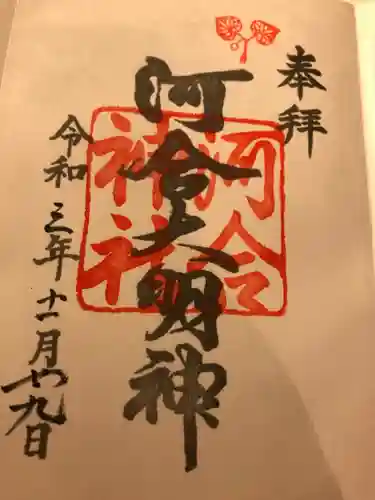 奉拝
河合大明神
河合
神社
令和三年十一月廿九日